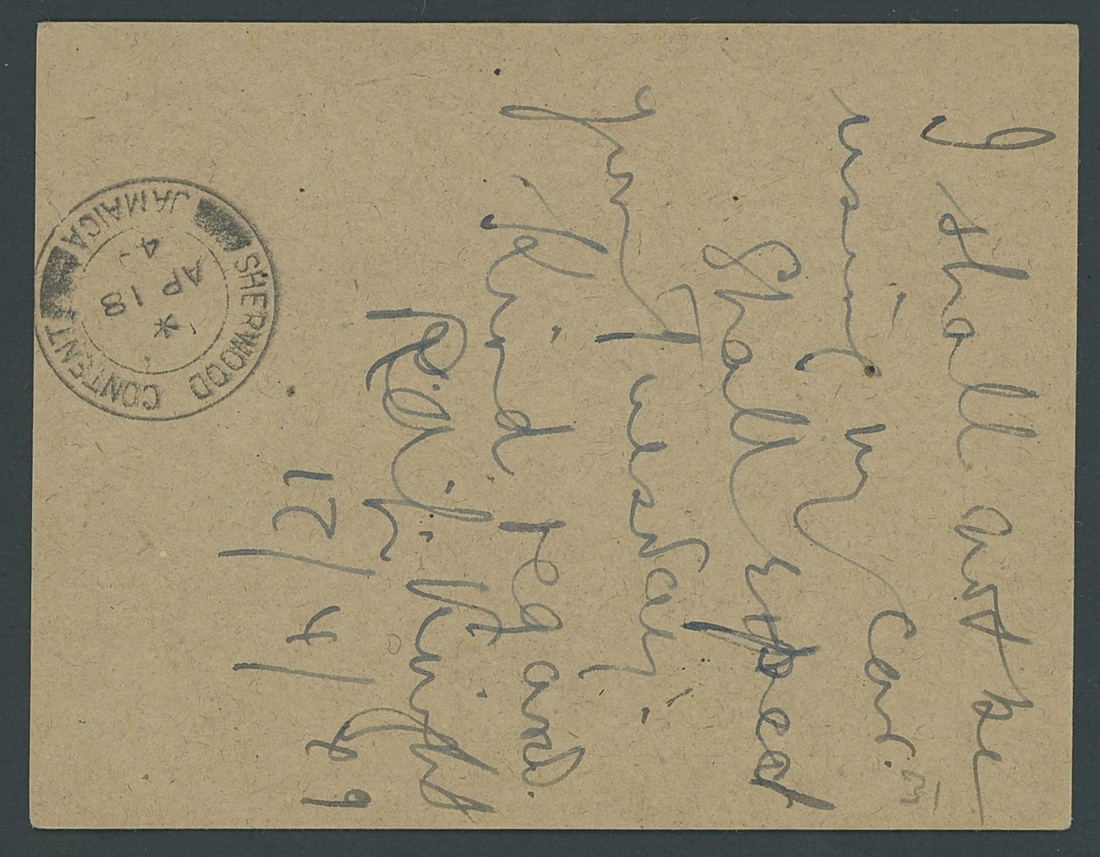 I shall not be
using my car.
Shall expect
you Tuesday.
Kind regards.
Knight
SHERWOOD CONTENT
JAMAICA
*
AP 18